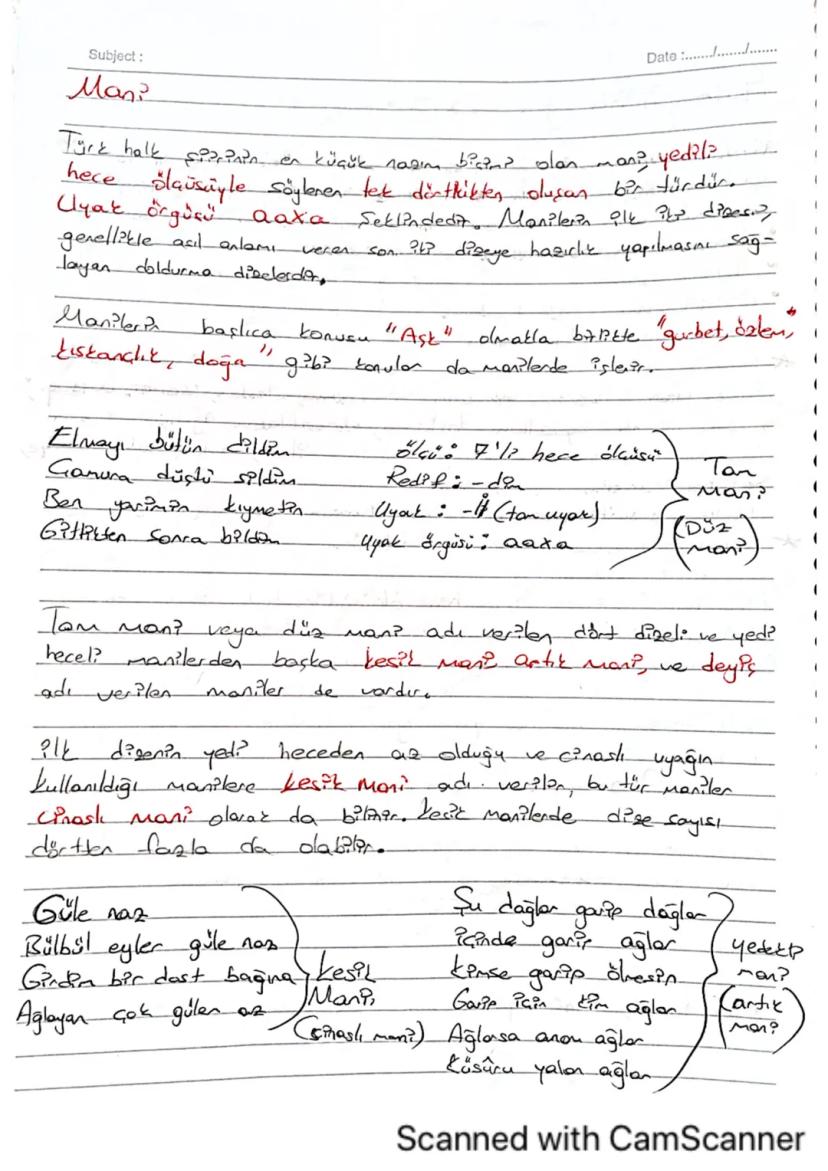 Subject :
Date :......./......./.......
Mani
Türk halk şiirinin en küçük nazım biçimi olan mani, yedili
hece ölçüsüyle söylenen tek dörtlükten oluşan bir türdür.
Uyak örgüsü aaxa şeklindedir. Manilerin ilk iki dizesi,
genellikle asıl anlamı veren son iki dizeye hazırlık yapılmasını sağ-
layan doldurma dizelerdir.
Manilerin başlıca konusu "Aşk" olmakla birlikte "gurbet, özlem,
kıskançlık, doğa" gibi konular da manilerde işlenir.
Elmayı bütün dildim ölçü: 7'li hece ölçüsü
Çamura düştü sildim Redif: -dim
Ben yarimin kıymetin Uyak: -il (tam uyak)
Gittikten sonra bildim Uyak örgüsü: aaxa
Tam
Mani
(Düz
mani)
Tam mani veya düz mani adı verilen dört dizeli ve yedi
heceli manilerden başka kesik mani, artık mani, ve deyiş
adı verilen maniler de vardır.
ilk dizenin yedi heceden az olduğu ve cinaslı uyağın
kullanıldığı manilere kesik mani adı verilir, bu tür maniler
cinaslı mani olarak da bilinir. Kesik manilerde dize sayısı
dörtten fazla da olabilir.
Güle naz
Bülbül eyler güle naz
Girdim bir dost bağına
Ağlayan çok gülen az
Kesik
Mani,
(cinaslı mani)
Şu dağlar garip dağlar
içinde garip ağlar
kimse garip ölmesin
Garip için kim ağlar
Ağlarsa anam ağlar
küsûru yalan ağlar
yedekli
mani
(artık
mani)
Scanned with CamScanner